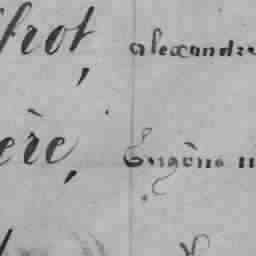 frot, alexandre
ère, Eugène